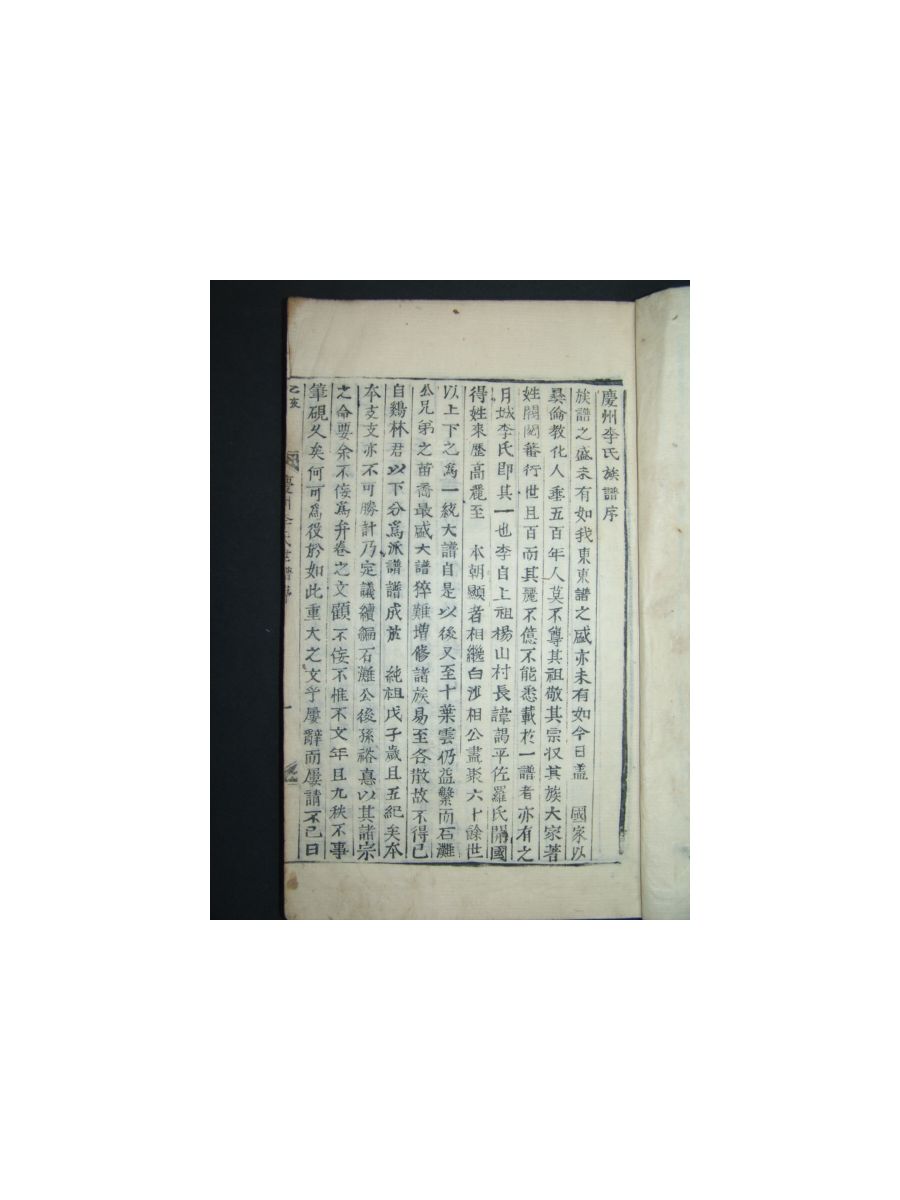 慶州李氏族譜序
族譜之盛未有如我東東譜之盛亦未有如今日盖　國家以
彛倫敎化人垂五百年人莫不尊其祖敬其宗収其族大家著
姓閥閱蕃衍世且百而其麗不億不能悉載於一譜者亦有之
月城李氏卽其一也李自上祖楊山村長諱謁平佐羅氏開國
得姓來歷高麗至　本朝顯者相繼白沙相公盡聚六十餘世
以上下之爲一統大譜自是以後又至十葉雲仍益繁而石灘
公兄弟之苗裔最盛大譜猝難增修諸族易至各散故不得已
自鷄林君以下分爲派譜譜成於　純祖戊子歲且五紀矣本
本支支亦不可勝計乃定議續編石灘公後孫裕憙以其諸宗
之命要余不侫爲弁卷之文顧不侫不惟不文年且九秩不事
筆硯久矣何可爲役於如此重大之文乎屢辭而屢請不已曰
乙亥
慶州李氏世譜序
一